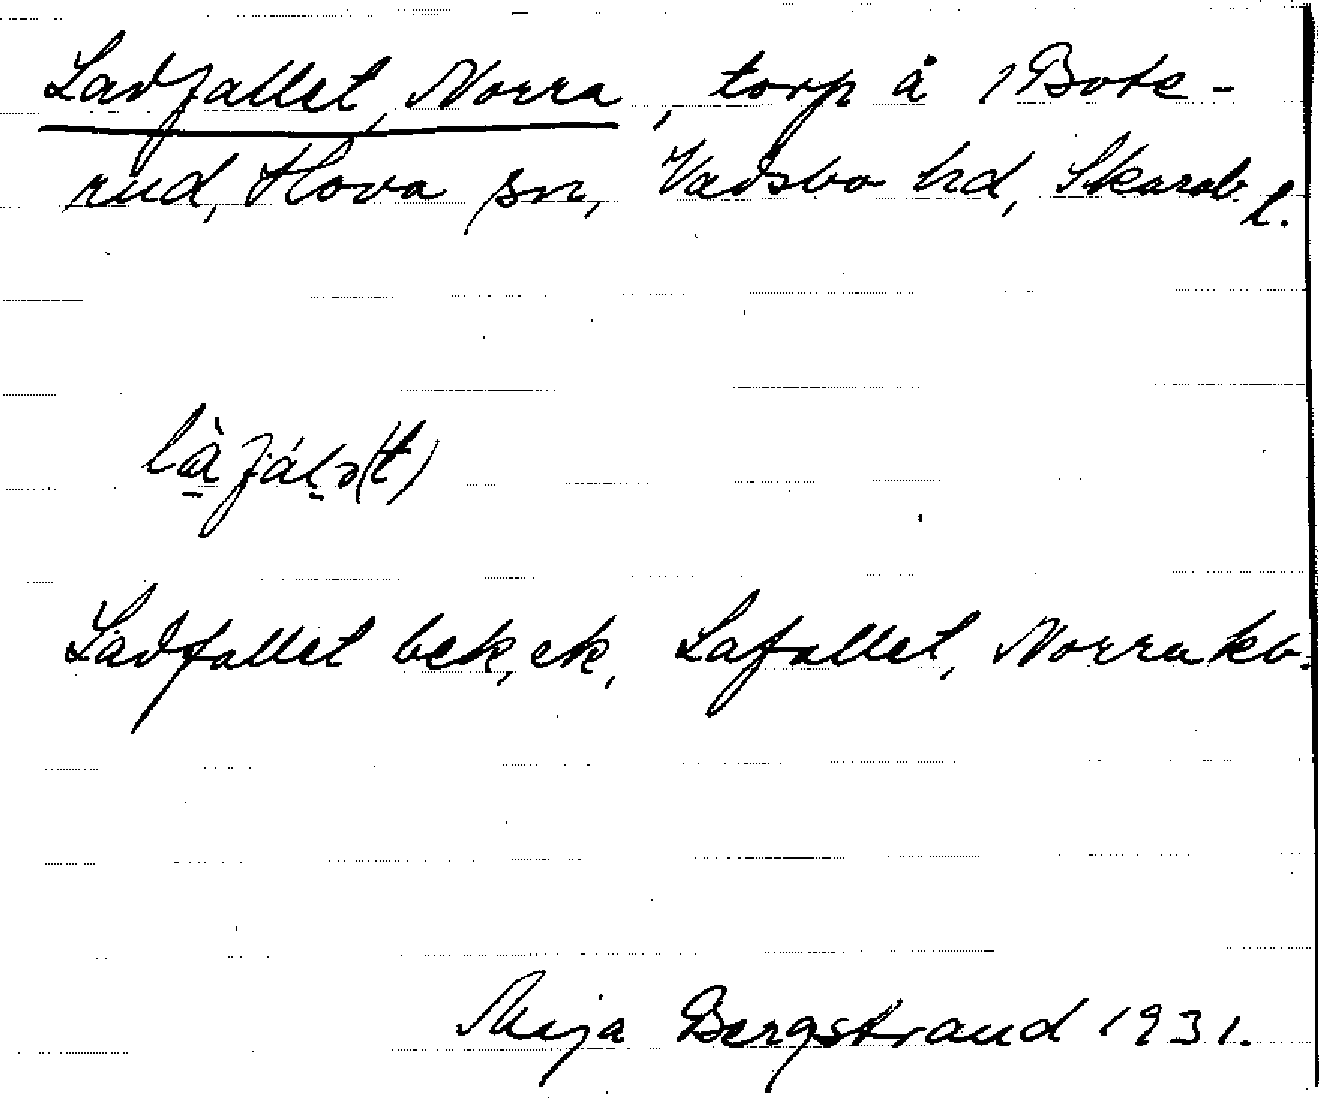 Ladfallet, Norra, torp å 1 Bote-
rud, Hova sn, Vadsbo hd, Skarab. l.
làfálə(t)
Ladfallet bek, ek, Lafallet, Norra kb.
Maja Bergstrand 1931.